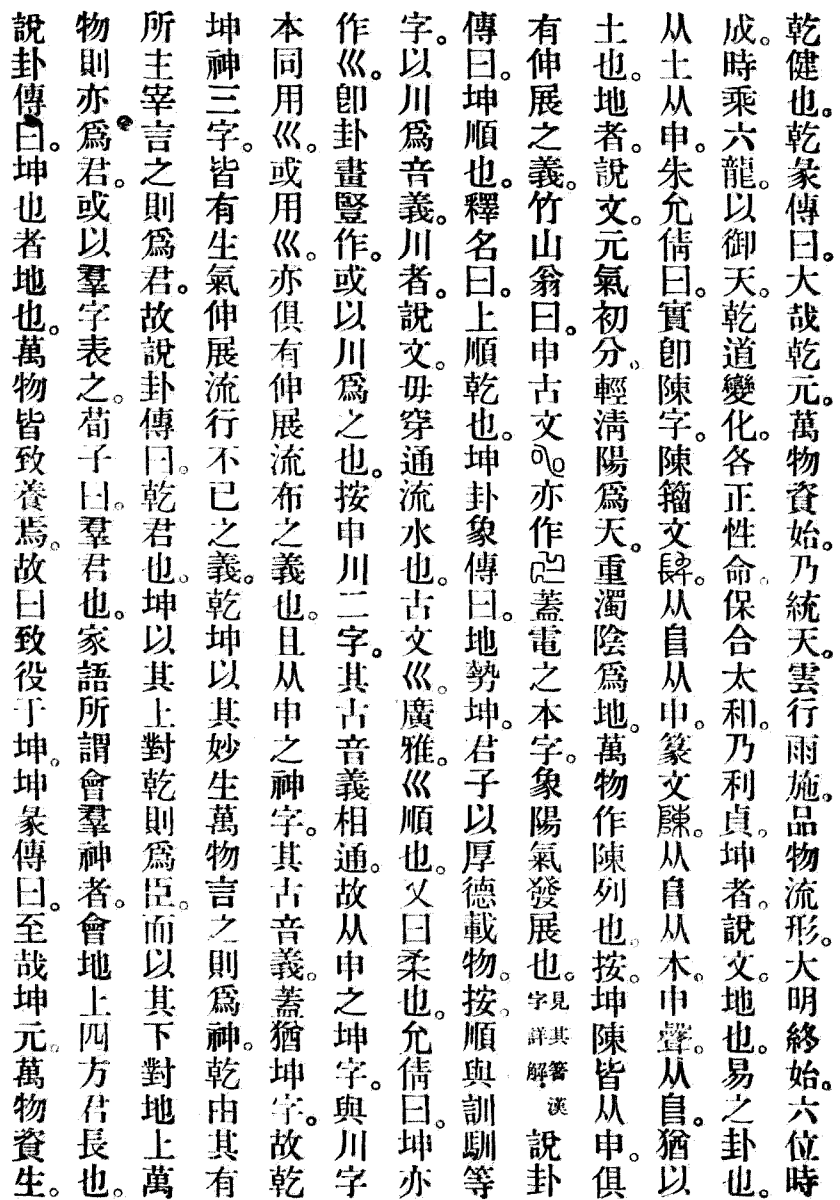 乾健也。乾彖傳曰。大哉乾元。萬物資始。乃統天。雲行雨施。品物流形。大明終始。六位時
成。時乘六龍。以御天。乾道變化。各正性命。保合太和。乃利貞。坤者。說文。地也。易之卦也。
从土从申。朱允倩曰。實卽陳字。陳籀文𨸬。从𨸏从申。篆文陳。从𨸏从木。申聲。从𨸏。猶以
土也。地者。說文。元氣初分。輕淸陽爲天。重濁陰爲地。萬物作陳列也。按。坤陳皆从申。俱
有伸展之義。竹山翁曰。申古文亦作蓋電之本字。象陽氣發展也。見其著漢字詳解。說卦
傳曰。坤順也。釋名曰。上順乾也。坤卦象傳曰。地勢坤。君子以厚德載物。按。順與訓馴等
字。以川爲音義。川者。說文。毋穿通流水也。古文巛。廣雅。巛順也。又曰柔也。允倩曰。坤亦
作巛。卽卦畫豎作。或以川爲之也。按申川二字。其古音義相通。故从申之坤字。與川字
本同用巛。或用巛。亦俱有伸展流布之義也。且从申之神字。其古音義。蓋猶坤字。故乾
坤神三字。皆有生氣伸展流行不已之義。乾坤以其妙生萬物言之則爲神。乾由其有
所主宰言之則爲君。故說卦傳曰。乾君也。坤以其上對乾則爲臣。而以其下對地上萬
物則亦爲君。或以羣字表之。荀子曰。羣君也。家語所謂會羣神者。會地上四方君長也。
說卦傳曰。坤也者地也。萬物皆致養焉。故曰致役于坤。坤彖傳曰。至哉坤元。萬物資生。